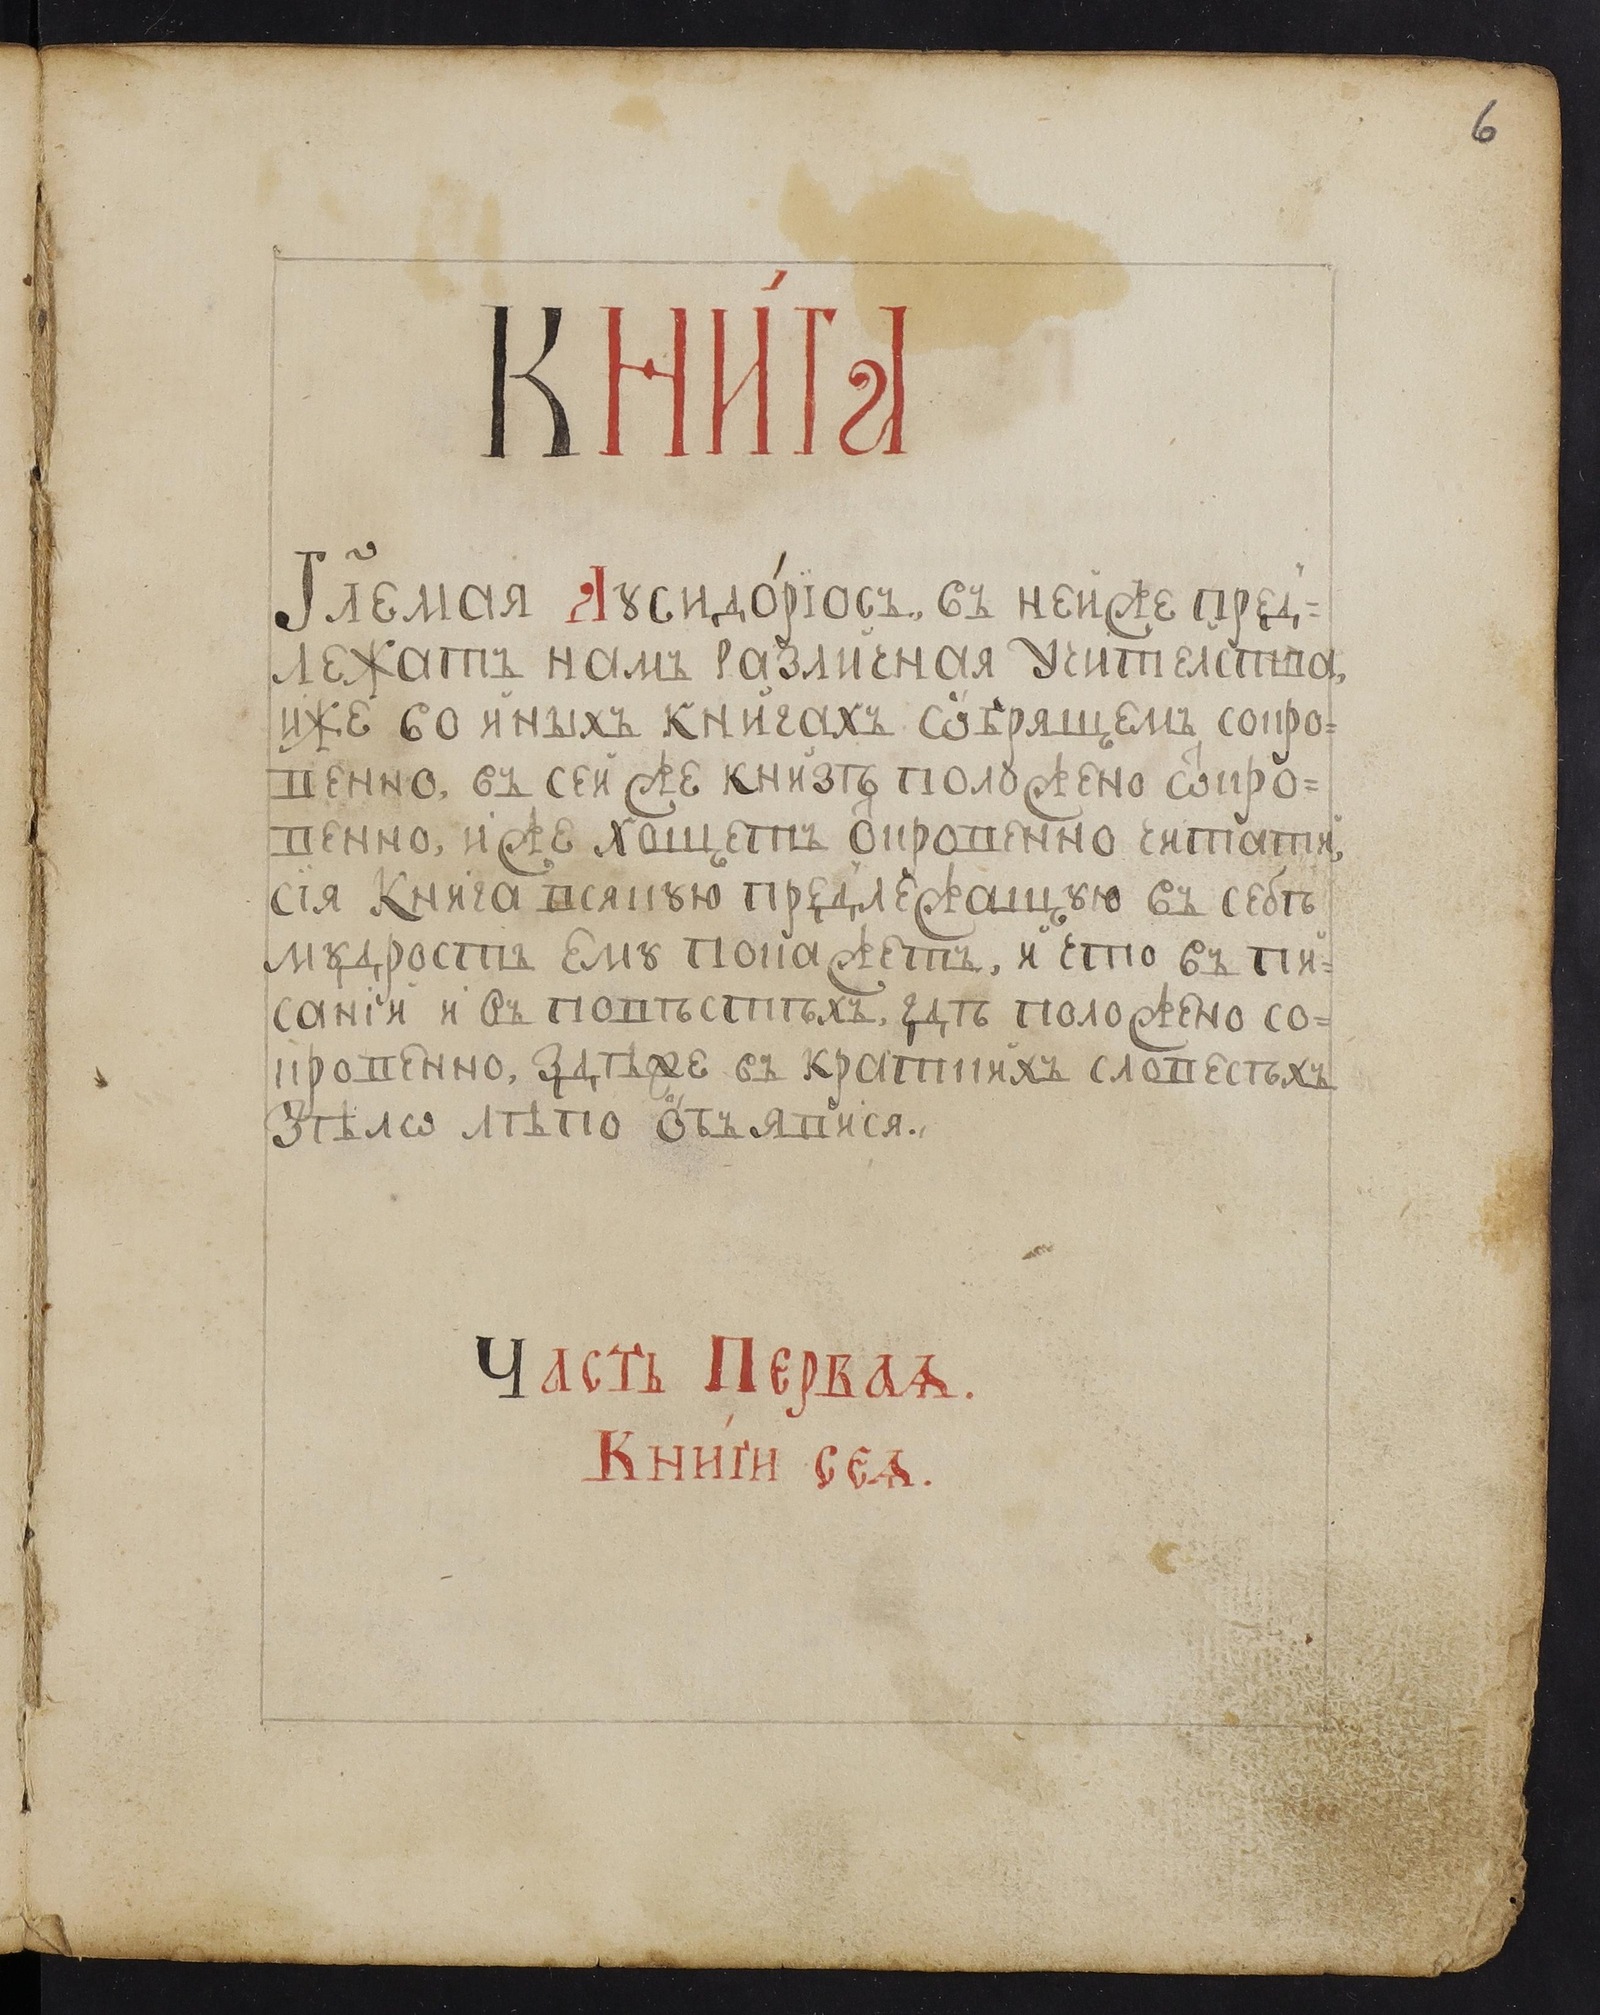 6
КНИ́ГА
Гл҃емая Аꙋсидо́рїосъ, въ нейже пред=
лежатъ намъ различная Учителства,
иже во иныхъ книгахъ ѡбрящемъ сокро=
венно, въ сей же книзѣ положено ѿкро=
венно, иже хощетъ ѿкровенно читати,
сїя Книга всякꙋю предлежащꙋю въ себѣ
мꙋдрость емꙋ покажетъ, и что въ пи=
саніи и въ повѣстѣхъ, гдѣ положено со=
кровенно, здѣже въ краткихъ словесѣхъ
Зѣлѡ лѣпо объявися.
Часть Перваѧ.
Кни́ги сеѧ.